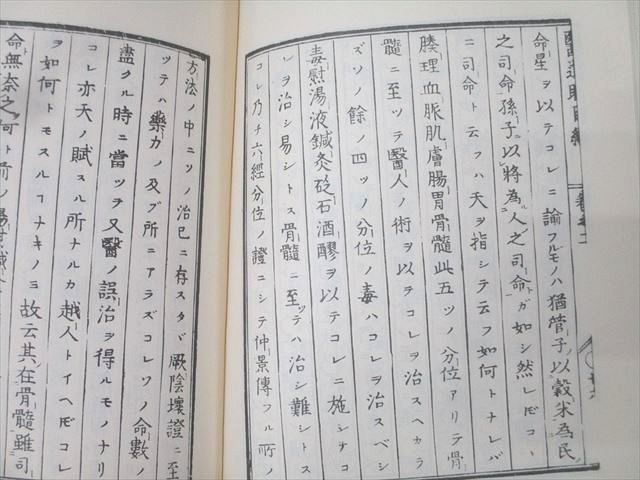 命星ヲ以テコレニ論フルモノハ猶管子以穀米為民
之司命孫子以將為人之司命ト云ガ如シ然レ𪜈コヽ
ニ司命ト云フハ天ヲ指シテ云フ如何トナレバ
腠理血脈肌膚腸胃骨髓此五ツノ分位アリテ骨
髓ニ至ツテ醫人ノ術ヲ以テコレヲ治スヘカラ
ズソノ餘ノ四ツノ分位ノ毒ハコレヲ治スベシ
毒熨湯液鍼灸砭石酒醪ヲ以テコレニ施シテコ
レヲ治シ易シトス骨髓ニ至ツテハ治シ難シトス
コレ乃チ六經分位ノ證ニシテ仲景傳フル所ノ
方法ノ中ニソノ治已ニ存スタヾ厥陰壞證ニ至
ツテハ藥力ノ及ブ所ニアラズコレソノ命數ノ
盡クル時ニ當ツテ又醫ノ誤治ヲ得ルモノナリ
コレ亦天ノ賦スル所ナルカ越人トイヘ𪜈コレ
ヲ如何トモスルヿナキノミ故云其在骨髓雖司
命無奈之何ト